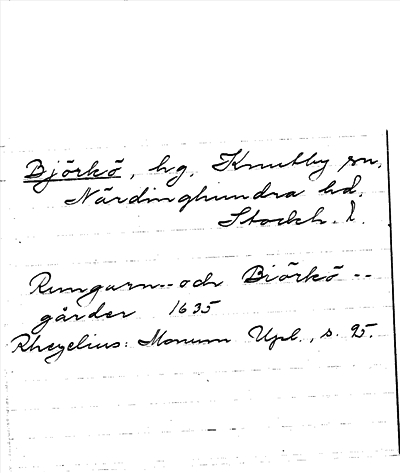 Björkö, hg, Knutby sn,
Närdinghundra hd,
Stockh. l.
Rungarn-- och Biörkö --
gårder 1635
Rhezelius: Monum Upl., s. 95.